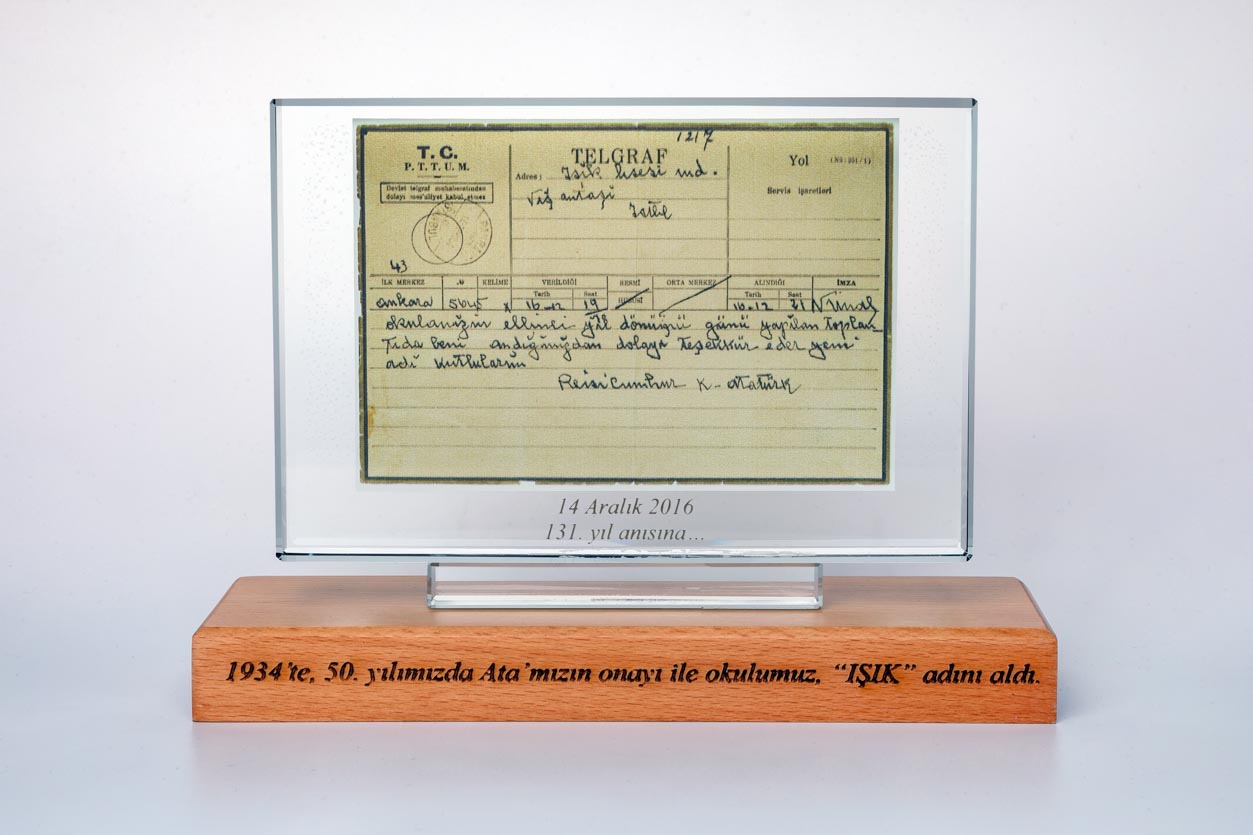 1217
T. C.
P. T. T. U. M.
Devlet telgraf muhaberatından
dolayı mes'uliyet kabul etmez
TELGRAF
Adres: Işık lisesi md.
Nişantaşı
İstbl
Yol (No: 351/1)
Servis işaretleri
43
İLK MERKEZ № KELİME VERİLDİĞİ RESMİ ORTA MERKEZ ALINDIĞI İMZA
Tarih Saat HUSUSİ Tarih Saat
ankara 5645 16-12 19 16-12 21
okulanızın ellinci yıl dönüşü günü yapılan toplan
tıda beni andığınızdan dolayı teşekkür eder yeni
adı kutlularım
Reisicumhur K. Atatürk
14 Aralık 2016
131. yıl anısına...
1934'te, 50. yılımızda Ata'mızın onayı ile okulumuz, “IŞIK” adını aldı.